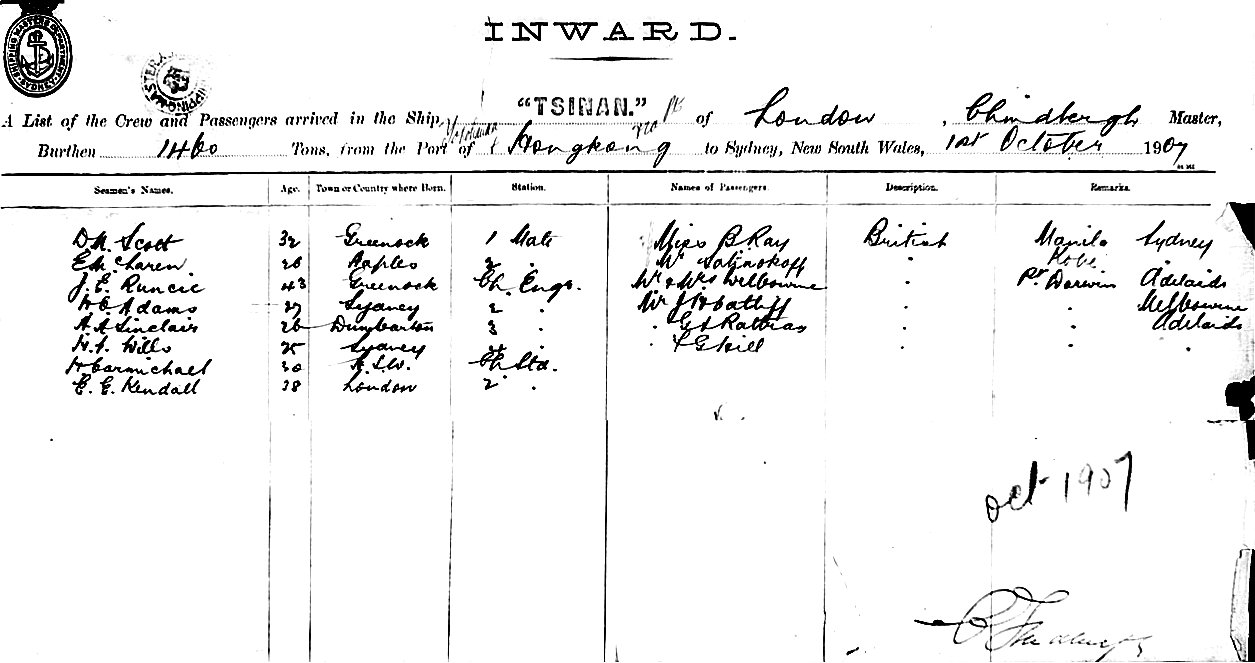 INWARD.
SHIPPING MASTERS DEPARTMENT SYDNEY
A List of the Crew and Passengers arrived in the Ship "TSINAN." of London, Master,
Burthen 1460 Tons, from the Port of Hongkong to Sydney, New South Wales, 1st October 1907
Seamen's Names. Age. Town or Country where Born. Station. Names of Passengers. Description. Remarks.
Scott 32 Greenock 1 Mate Miss B Ray British Manila Sydney
26 Naples 2 Mr Kobe
J. E. Runcie 43 Greenock Ch. Engr. Mr & Mrs Welbourne Pt Darwin Adelaide
Adams 27 Sydney 2 Mr Melbourne
A A Sinclair 26 Dumbarton 3 Adelaide
Wills 25 Sydney
H Carmichael 30 N.S.W. Ch Std.
E. E. Kendall 28 London 2
Oct 1907